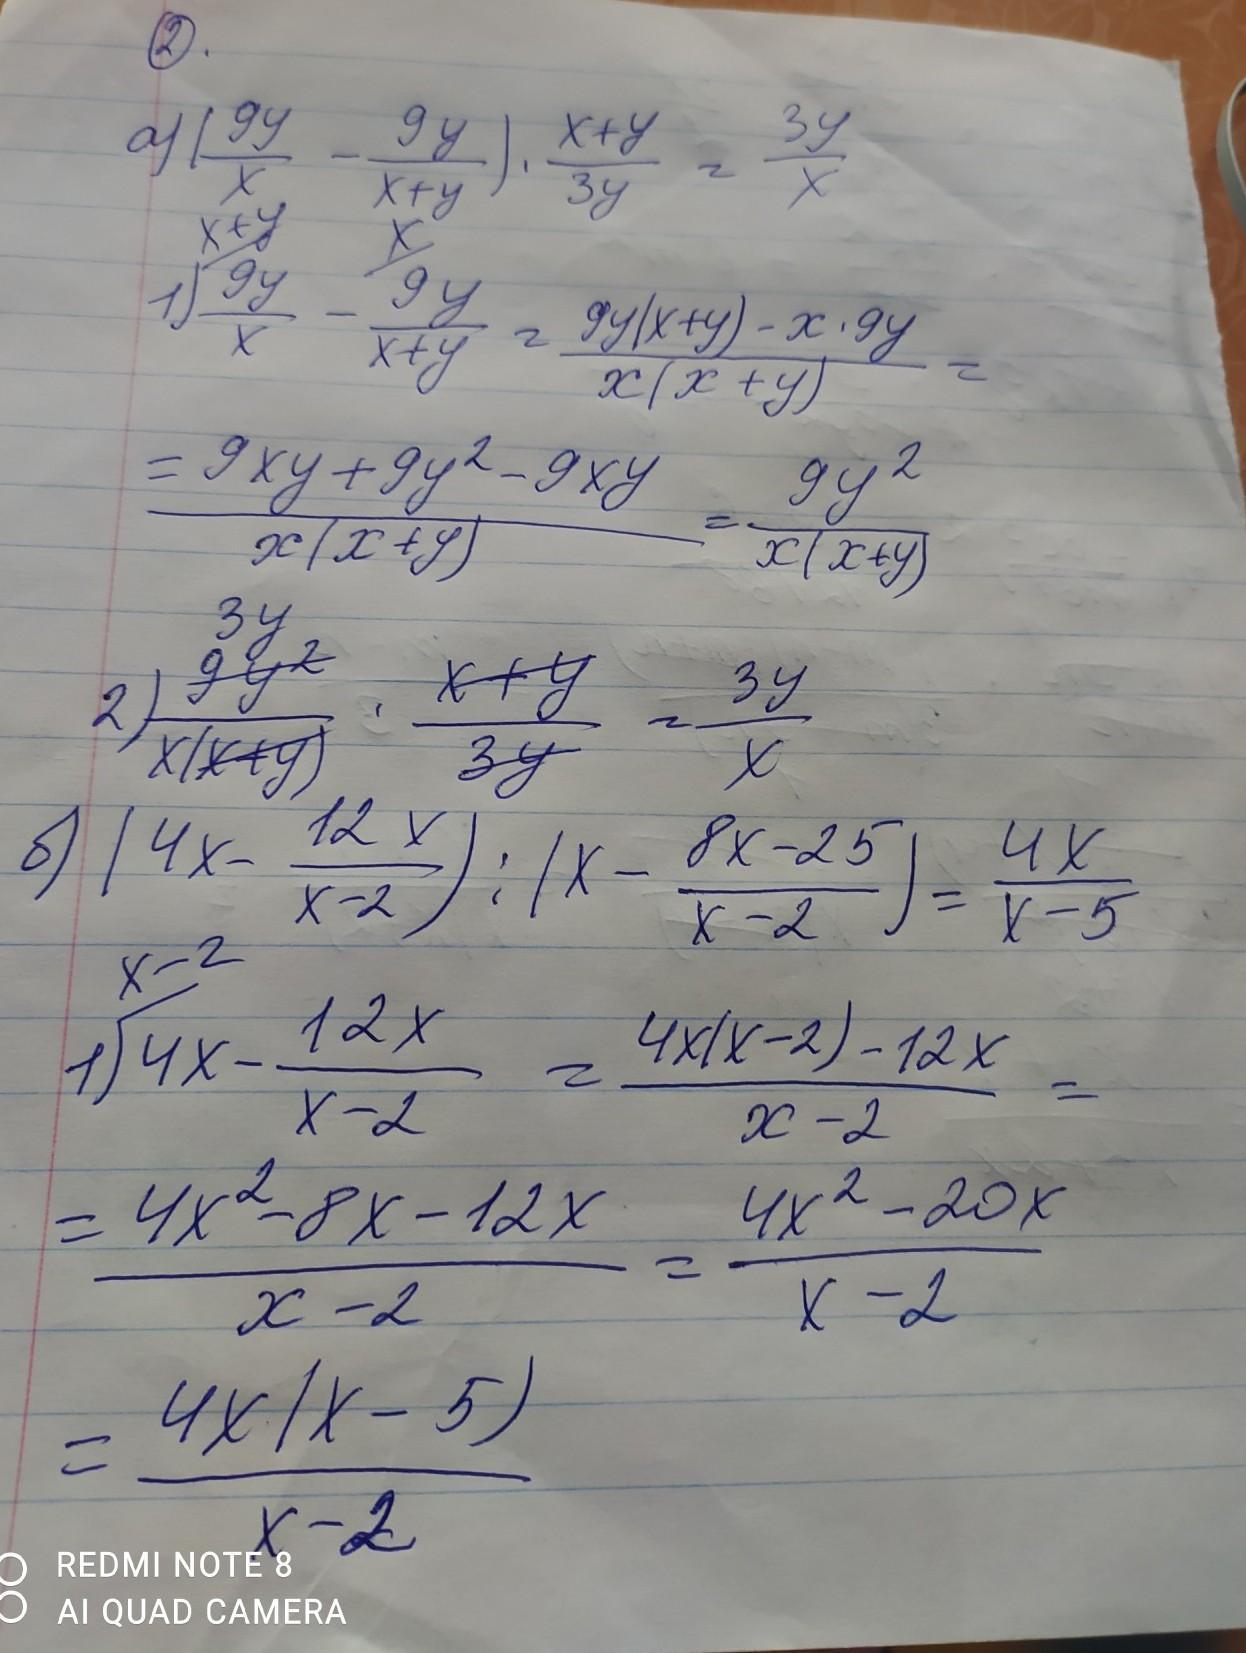 2.
а) (9y/x - 9y/(x+y)) · (x+y)/3y = 3y/x
x+y x
1) 9y/x - 9y/(x+y) = (9y(x+y) - x·9y)/(x(x+y)) =
= (9xy + 9y² - 9xy)/(x(x+y)) = 9y²/(x(x+y))
3y
2) 9y²/(x(x+y)) · (x+y)/3y = 3y/x
б) (4x - 12x/(x-2)) : (x - (8x-25)/(x-2)) = 4x/(x-5)
x-2
1) 4x - 12x/(x-2) = (4x(x-2) - 12x)/(x-2) =
= (4x² - 8x - 12x)/(x-2) = (4x² - 20x)/(x-2)
= 4x(x-5)/(x-2)
REDMI NOTE 8
AI QUAD CAMERA